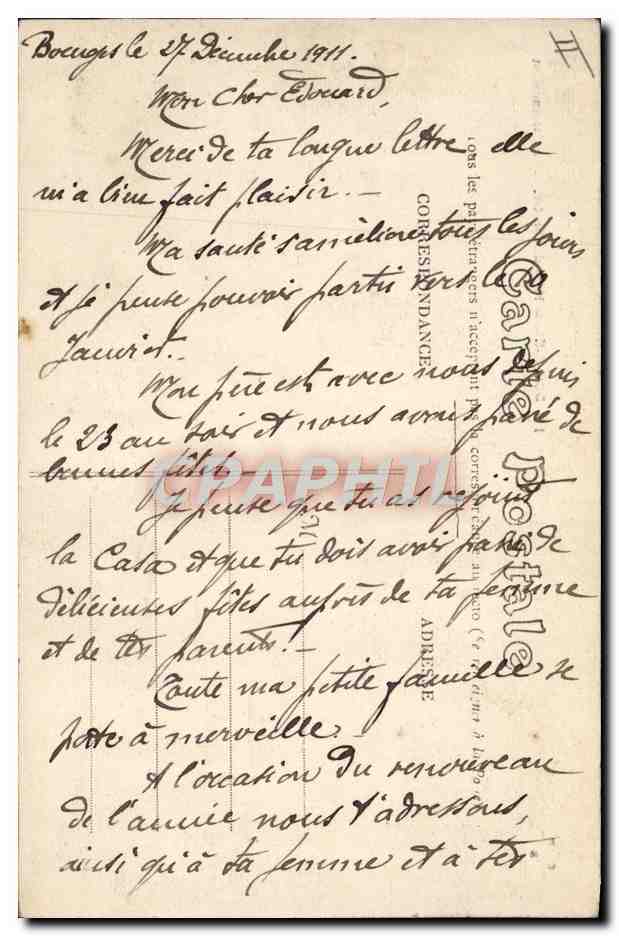 Bourges le 27 Décembre 1911.
II
Mon Cher Edouard,
Merci de ta longue lettre elle
m'a bien fait plaisir. –
Ma santé s'améliore tous les jours
et je pense pouvoir partir vers le 10
Janvier. –
Mon père est avec nous depuis
le 23 au soir et nous avons passé de
bonnes fêtes –
Je pense que tu as rejoint
la Casa et que tu dois avoir passé de
délicieuses fêtes auprès de ta femme
et de tes parents. –
Toute ma petite famille se
porte à merveille. –
A l'occasion du renouveau
de l'année nous t'adressons,
ainsi qu'à ta femme et à tes
Carte Postale
Tous les pays étrangers n'acceptent pas la correspondance au recto (Se renseigner à la poste)
CORRESPONDANCE
ADRESSE
CPAPHIL